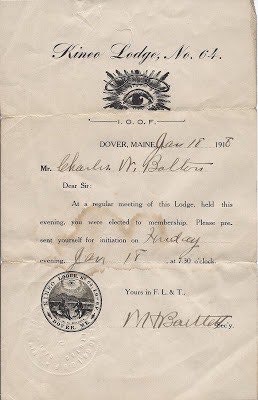 Kineo Lodge, No. 64.
I. O. O. F.
DOVER, MAINE, Jan 18 1918
Mr. Charles W. Bolters
Dear Sir:
At a regular meeting of this Lodge, held this
evening, you were elected to membership. Please pre-
sent yourself for initiation on Friday
evening, Jan 18, at 7.30 o'clock.
Yours in F. L. & T.,
M H Bartlett Sec'y.
KINEO LODGE NO. 64 I.O.O.F.
DOVER, ME.